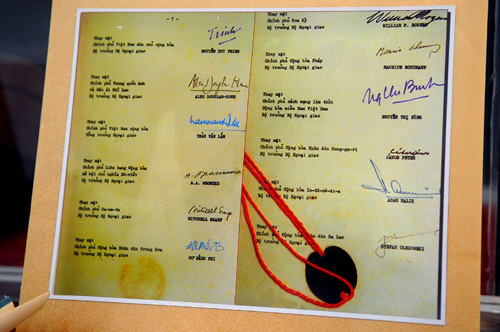 - 7 -
Thay mặt
Chính phủ Việt Nam dân chủ cộng hòa
Bộ trưởng Bộ Ngoại giao
NGUYỄN DUY TRINH
Thay mặt
Chính phủ Vương quốc Anh
và Bắc Ai Nhĩ Lan
Bộ trưởng Bộ Ngoại giao
ALEC DOUGLAS-HOME
Thay mặt
Chính phủ Việt Nam cộng hòa
Tổng trưởng Bộ Ngoại giao
TRẦN VĂN LẮM
Thay mặt
Chính phủ Liên bang cộng hòa
xã hội chủ nghĩa Xô-viết
Bộ trưởng Bộ Ngoại giao
A.A. GROMYKO
Thay mặt
Chính phủ Ca-na-đa
Bộ trưởng Bộ Ngoại giao
MITCHELL SHARP
Thay mặt
Chính phủ Cộng hòa Nhân dân Trung Hoa
Bộ trưởng Bộ Ngoại giao
CƠ BẰNG PHI
Thay mặt
Chính phủ Hoa Kỳ
Bộ trưởng Bộ Ngoại giao
WILLIAM P. ROGERS
Thay mặt
Chính phủ Cộng hòa Pháp
Bộ trưởng Bộ Ngoại giao
MAURICE SCHUMANN
Thay mặt
Chính phủ cách mạng lâm thời
Cộng hòa miền Nam Việt Nam
Bộ trưởng Bộ Ngoại giao
NGUYỄN THỊ BÌNH
Thay mặt
Chính phủ Cộng hòa Nhân dân Hung-ga-ri
Bộ trưởng Bộ Ngoại giao
JANOS PETER
Thay mặt
Chính phủ Cộng hòa In-đô-nê-xi-a
Bộ trưởng Bộ Ngoại giao
ADAM MALIK
Thay mặt
Chính phủ Cộng hòa Nhân dân Ba Lan
Bộ trưởng Bộ Ngoại giao
STEFAN OLSZOWSKI